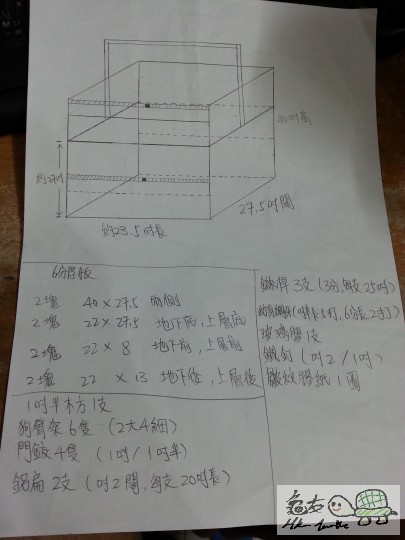 40吋高
27.5吋闊
約23.5吋長
6分厚板
2塊 40 × 27.5 兩側
2塊 22 × 27.5 地下底,上層底
2塊 22 × 8 地下前,上層前
2塊 22 × 13 地下後,上層後
1吋半木方1支
狗臂架6隻 (2大4細)
門鉸4隻 (1吋/1吋半)
鋁扁2支 (吋2闊,每支20吋長)
鐵桿3支 (3分,每支25吋)
玻璃膠1支
鐵釘 (吋2/1吋)
皺紋膠紙1圈
龜友